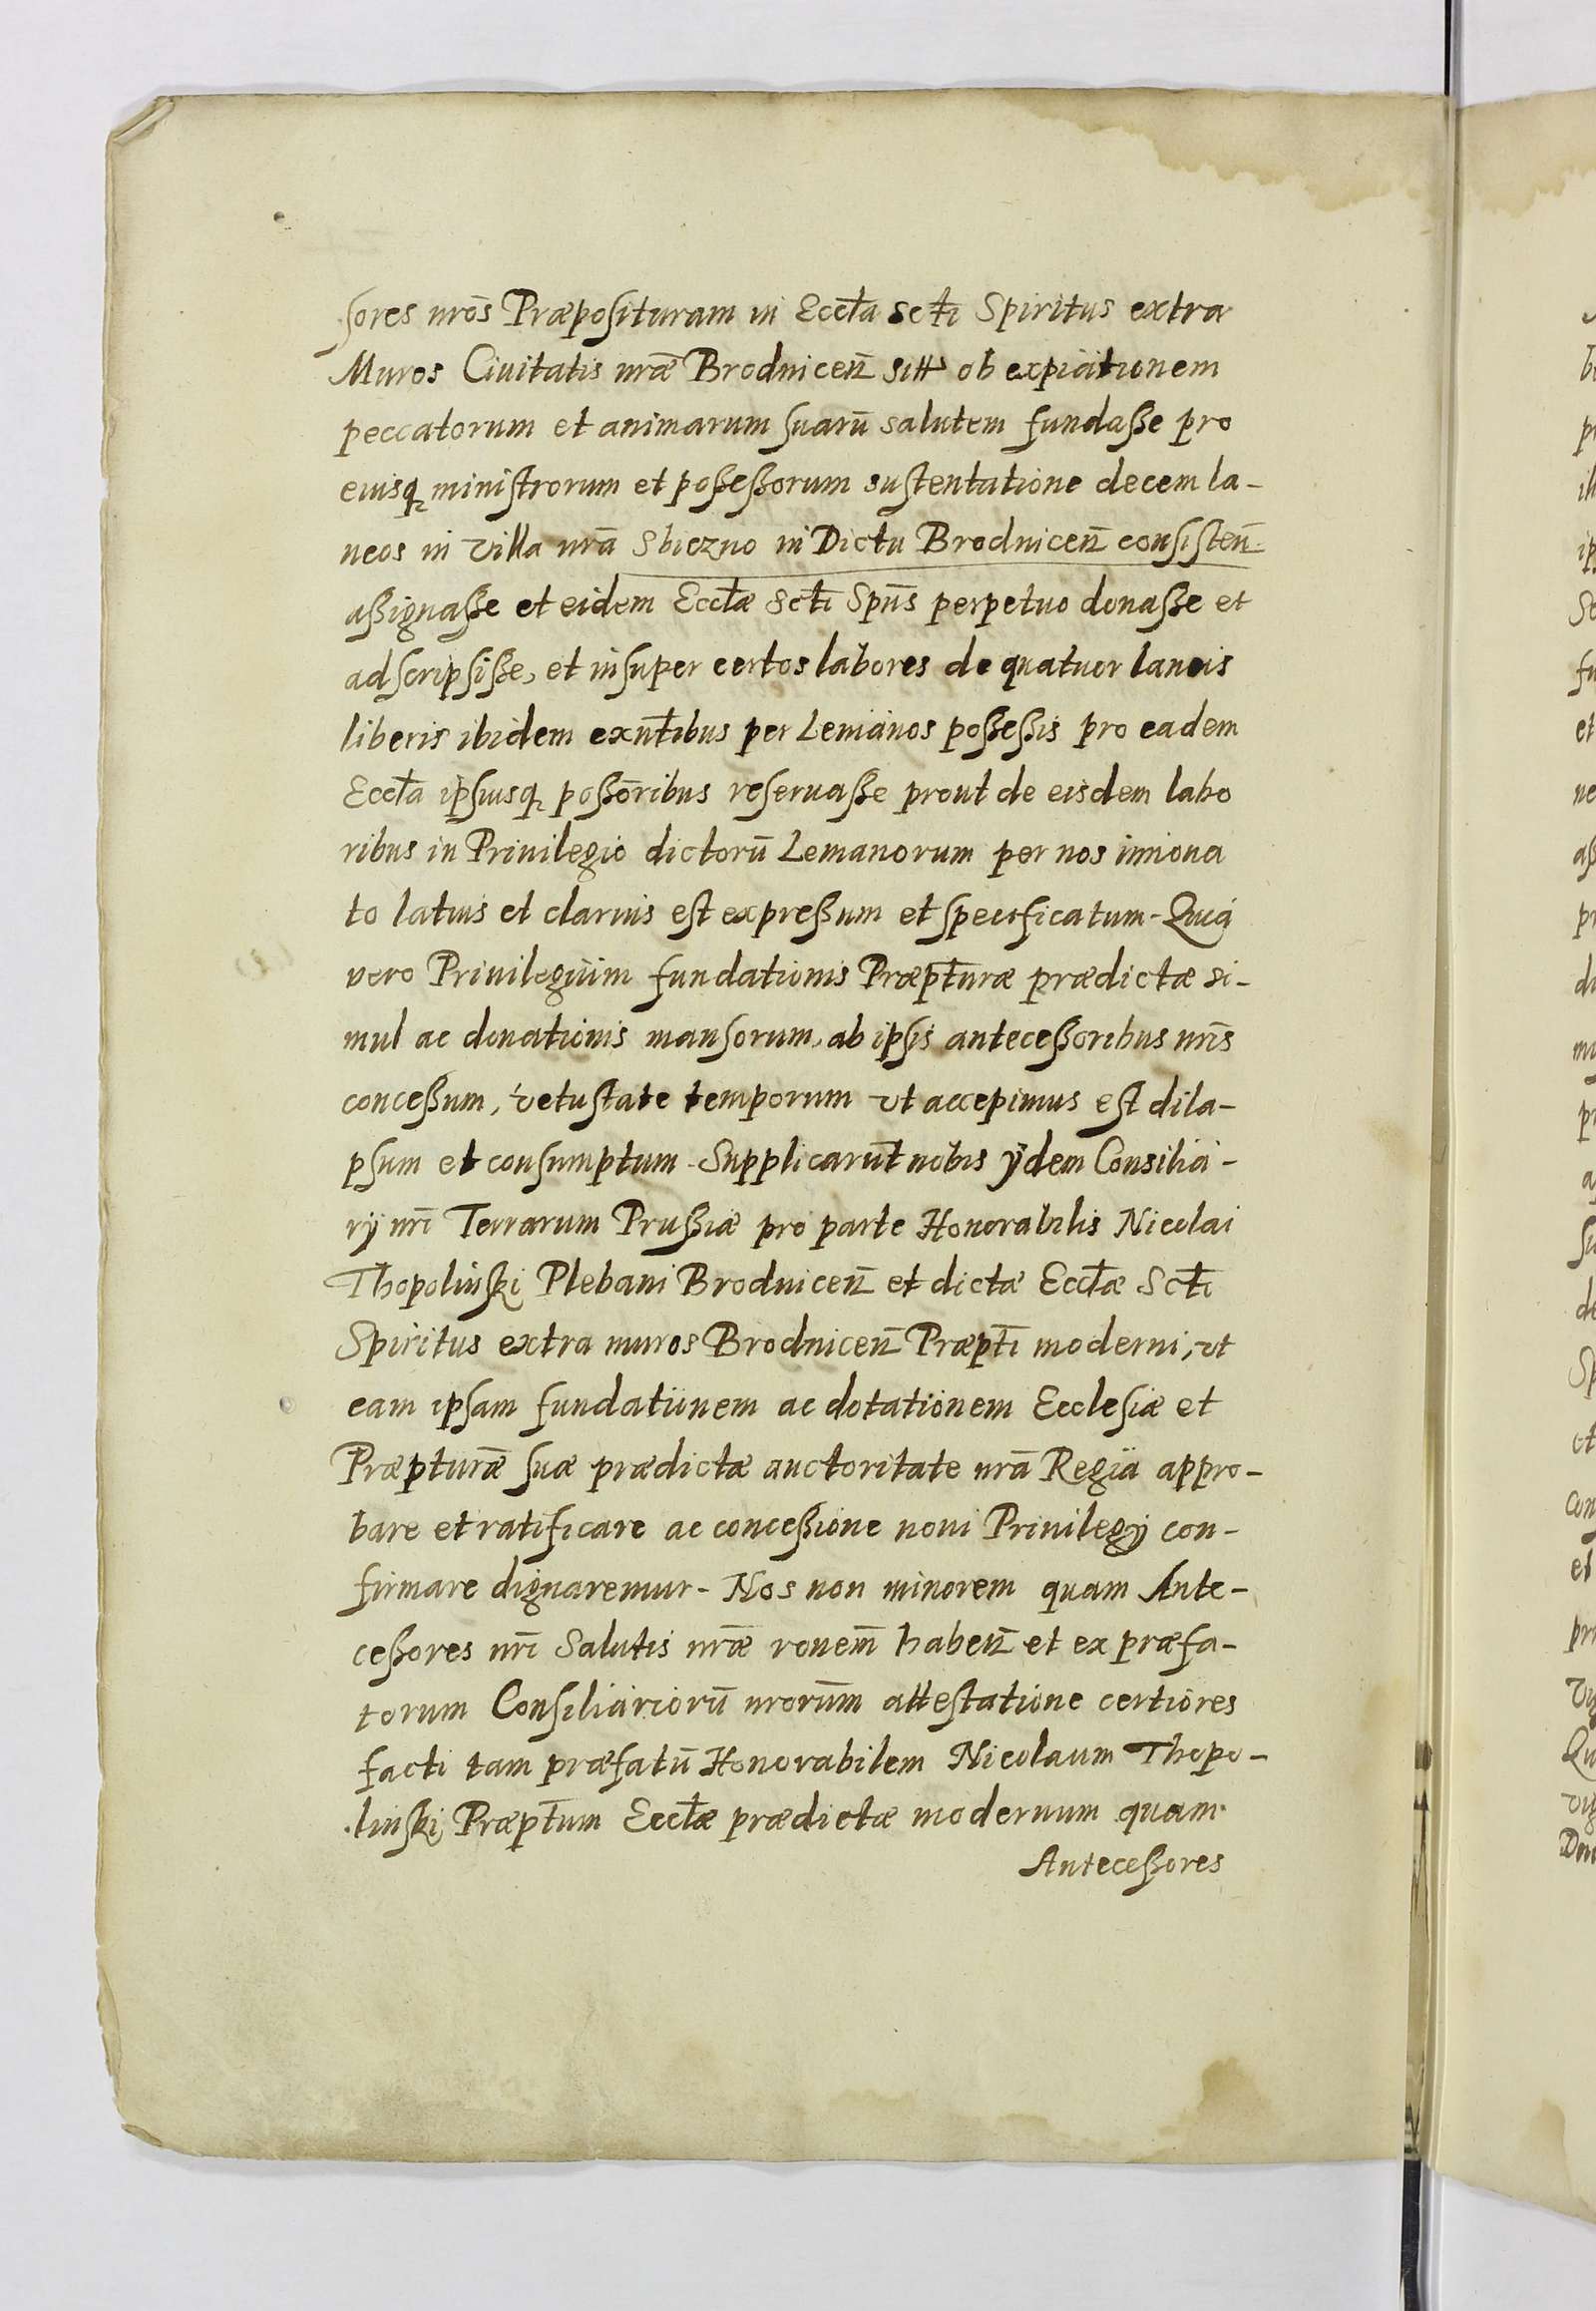 ſores nrōs Præpoſituram in Eccła scti Spiritus extra
Muros Ciuitatis nræ Brodnicen̄ ob expiationem
peccatorum et animarum ſuarū salutem fundaße pro
eiusq miniſtrorum et poßeßorum suſtentatione decem la-
neos in villa nrā Sbiczno in Dictu Brodnicen̄ conſiſten̄
aßignaße et eidem Eccłæ Scti Spūs perpetuo donaße et
adſcripſiße, et inſuper certos labores de quatuor laneis
liberis ibidem exn̄tibus per Lemanos poßeßis pro eadem
Eccła ipſiusq poßōribus reſeruaße prout de eisdem labo
ribus in Priuilegio dictorū Lemanorum per nos innoua
to latius et clarius eſt expreßum et ſpecificatum - Quia
vero Priuilegium fundationis Præpturæ prædictæ si-
mul ac donationis manſorum, ab ipſis anteceßoribus nrīs
conceßum, vetuſtate temporum vt accepimus eſt dila-
pſum et conſumptum. Supplicarūt nobis ÿdem Consilia-
rÿ nrī Terrarum Prußiæ pro parte Honorabilis Nicolai
Thopolinſki Plebani Brodnicen̄ et dictæ Eccłæ Scti
Spiritus extra muros Brodnicen̄ Præpti moderni, vt
eam ipſam fundationem ac dotationem Eccleſiæ et
Præpturæ ſuæ prædictæ auctoritate nrā Regia appro-
bare et ratificare ac conceßione noui Priuilegÿ con-
firmare dignaremur - Nos non minorem quam Ante-
ceßores nrī Salutis nræ ronem̄ haben̄ et ex præfa-
torum Conſiliariorū nrorūm atteſtatione certiores
facti tam præfatū Honorabilem Nicolaum Thopo-
linſki Præptum Eccłæ prædictæ modernum quam
Anteceßores